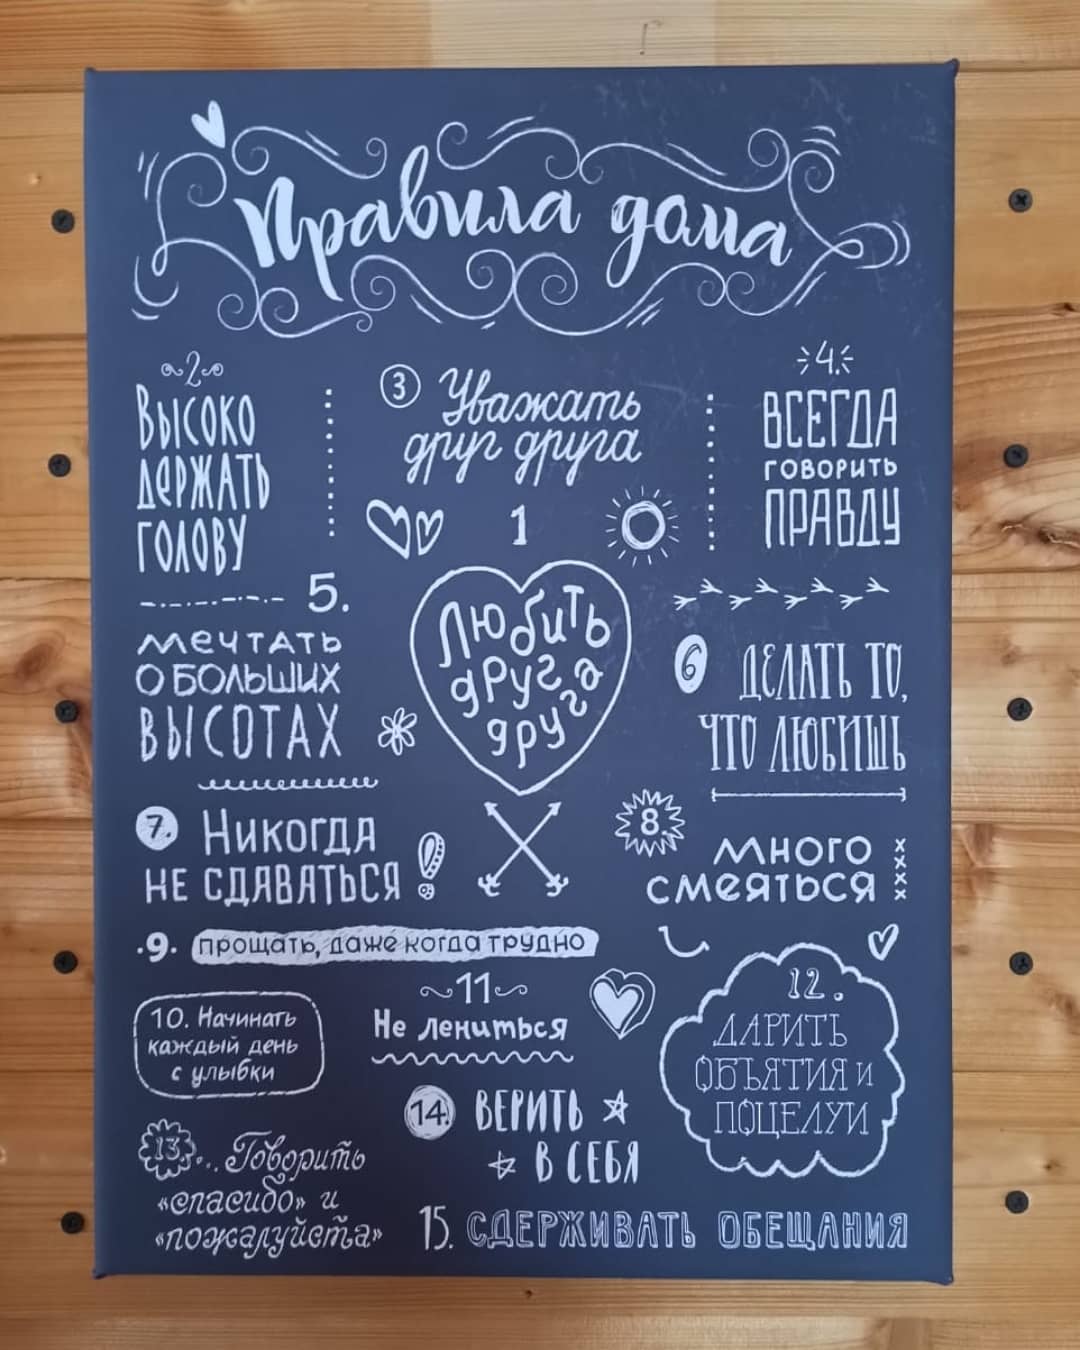 Правила дома
2
Высоко
держать
голову
3 Уважать
друг друга
4.
ВСЕГДА
ГОВОРИТЬ
ПРАВДУ
1
Любить
друг
друга
5.
мечтать
о больших
высотах
6 ДЕЛАТЬ ТО,
ЧТО ЛЮБИШЬ
7. Никогда
не сдаваться
8.
много
смеяться
.9. прощать, даже когда трудно
10. Начинать
каждый день
с улыбки
11
Не лениться
12.
ДАРИТЬ
ОБЪЯТИЯ и
ПОЦЕЛУИ
13... Говорить
«спасибо» и
«пожалуйста»
14. ВЕРИТЬ
В СЕБЯ
15. СДЕРЖИВАТЬ ОБЕЩАНИЯ